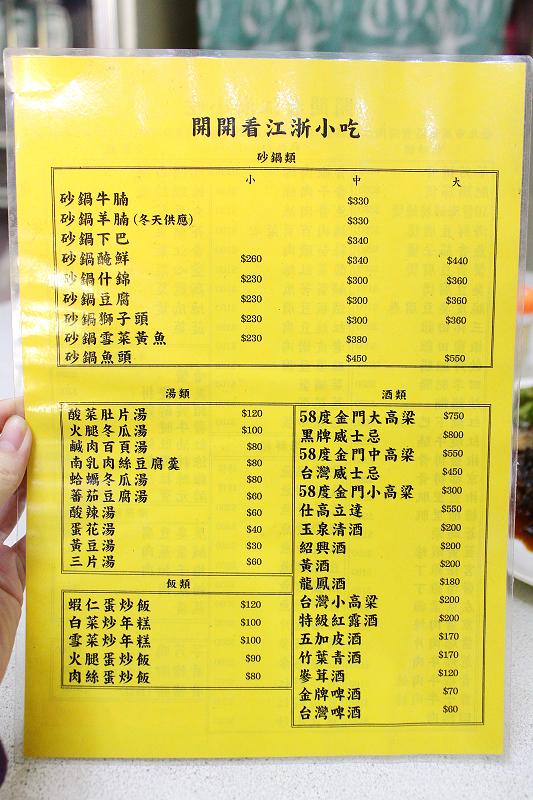 開開看江浙小吃
砂鍋類
小 中 大
砂鍋牛腩 $330
砂鍋羊腩(冬天供應) $330
砂鍋下巴 $340
砂鍋醃鮮 $260 $340 $440
砂鍋什錦 $230 $300 $360
砂鍋豆腐 $230 $300 $360
砂鍋獅子頭 $230 $300 $360
砂鍋雪菜黃魚 $230 $380
砂鍋魚頭 $450 $550
湯類
酸菜肚片湯 $120
火腿冬瓜湯 $100
鹹肉百頁湯 $80
南乳肉絲豆腐羹 $80
蛤蠣冬瓜湯 $80
蕃茄豆腐湯 $60
酸辣湯 $60
蛋花湯 $40
黃豆湯 $30
三片湯 $60
飯類
蝦仁蛋炒飯 $120
白菜炒年糕 $100
雪菜炒年糕 $100
火腿蛋炒飯 $90
肉絲蛋炒飯 $80
酒類
58度金門大高梁 $750
黑牌威士忌 $800
58度金門中高梁 $550
台灣威士忌 $450
58度金門小高梁 $300
仕高立達 $550
玉泉清酒 $200
紹興酒 $200
黃酒 $200
龍鳳酒 $180
台灣小高梁 $200
特級紅露酒 $200
五加皮酒 $170
竹葉青酒 $170
蔘茸酒 $120
金牌啤酒 $70
台灣啤酒 $60